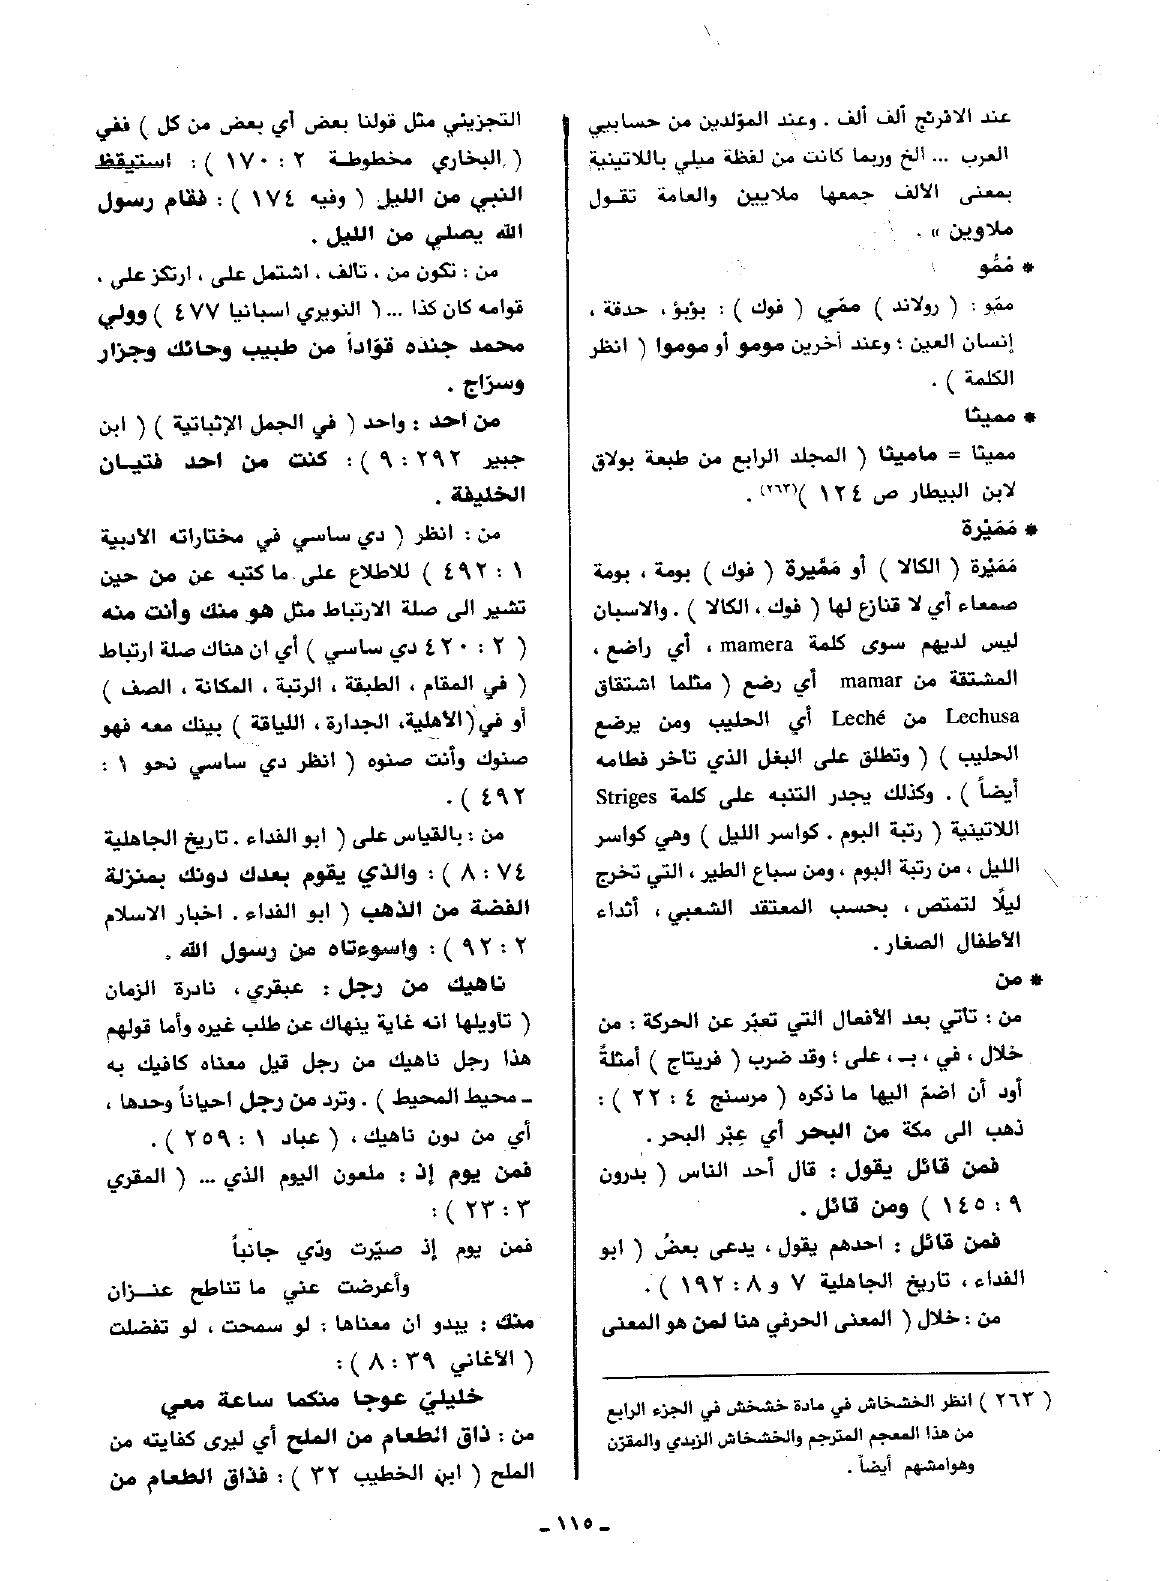 عند الافرنج ألف ألف . وعند المؤلدين من حسابيي
العرب ... الخ وربما كانت من لفظة ميلي باللاتينية
بمعنى الألف جمعها ملايين والعامة تقـول
ملاوين » .
* مُمُو
ممّو : ( رولاند ) ممّي ( فوك ) : بؤبؤ ، حدقة ،
إنسان العين ؛ وعند آخرين مومو أو موموا ( انظر
الكلمة ) .
* مميثا
مميثا = ماميثا ( المجلد الرابع من طبعة بولاق
لابن البيطار ص ١٢٤ )(٢٦٣) .
* مَمَيْرة
مَمَيْرة ( الكالا ) أو مَمَّيرة ( فوك ) بومة ، بومة
صمعاء أي لا قنازع لها ( فوك ، الكالا ) . والاسبان
ليس لديهم سوى كلمة mamera ، أي راضع ،
المشتقة من mamar أي رضع ( مثلما اشتقاق
Lechusa من Leché أي الحليب ومن يرضع
الحليب ) ( وتطلق على البغل الذي تأخر فطامه
أيضاً ) . وكذلك يجدر التنبه على كلمة Striges
اللاتينية ( رتبة البوم . كواسر الليل ) وهي كواسر
الليل ، من رتبة البوم ، ومن سباع الطير ، التي تخرج
ليلًا لتمتص ، بحسب المعتقد الشعبي ، أثداء
الأطفال الصغار .
* من
من : تأتي بعد الأفعال التي تعبّر عن الحركة : من
خلال ، في ، بـ ، على ؛ وقد ضرب ( فريتاج ) أمثلةً
أود أن اضمّ اليها ما ذكره ( مرسنج ٤ : ٢٢ ) :
ذهب الى مكة من البحر أي عِبْر البحر .
فمن قائل يقول : قال أحد الناس ( بدرون
١٤٥ : ٩ ) ومن قائل .
فمن قائل : احدهم يقول ، يدعى بعضُ ( ابو
الفداء ، تاريخ الجاهلية ٧ و ٨ : ١٩٢ ) .
من : خلال ( المعنى الحرفي هنا لمن هو المعنى
( ٢٦٣ ) انظر الخشخاش في مادة خشخش في الجزء الرابع
من هذا المعجم المترجم والخشخاش الزبدي والمقرّن
وهوامشهم أيضاً .
التجزيئي مثل قولنا بعض أي بعض من كل ) ففي
( البخاري مخطوطة ٢ : ١٧٠ ) : استيقظ
النبي من الليل ( وفيه ١٧٤ ) : فقام رسول
الله يصلي من الليل .
من : تكون من ، تألف ، اشتمل على ، ارتكز على ،
قوامه كان كذا ... ( النويري اسبانيا ٤٧٧ ) وولي
محمد جنده قوّاداً من طبيب وحائك وجزار
وسرّاج .
من احد : واحد ( في الجمل الإثباتية ) ( ابن
جبير ٢٩٢ : ٩ ) : كنت من احد فتيـان
الخليفة .
من : انظر ( دي ساسي في مختاراته الأدبية
١ : ٤٩٢ ) للاطلاع على ما كتبه عن من حين
تشير الى صلة الارتباط مثل هو منك وأنت منه
( ٢ : ٤٢٠ دي ساسي ) أي ان هناك صلة ارتباط
( في المقام ، الطبقة ، الرتبة ، المكانة ، الصف )
أو في ( الأهلية، الجدارة ، اللياقة ) بينك معه فهو
صنوك وأنت صنوه ( انظر دي ساسي نحو ١ :
٤٩٢ ) .
من : بالقياس على ( ابو الفداء . تاريخ الجاهلية
٧٤ : ٨ ) : والذي يقوم بعدك دونك بمنزلة
الفضة من الذهب ( ابو الفداء . اخبار الاسلام
٢ : ٩٢ ) : واسوءتاه من رسول الله .
ناهيك من رجل : عبقري ، نادرة الزمان
( تأويلها انه غاية ينهاك عن طلب غيره وأما قولهم
هذا رجل ناهيك من رجل قيل معناه كافيك به
ـ محيط المحيط ) . وترد من رجل احياناً وحدها ،
أي من دون ناهيك ، ( عباد ١ : ٢٥٩ ) .
فمن يوم إذ : ملعون اليوم الذي ... ( المقري
٣ : ٢٣ ) :
فمن يوم إذ صيّرت ودّي جانباً
وأعرضت عني ما تناطح عنـزان
منك : يبدو ان معناها : لو سمحت ، لو تفضلت
( الأغاني ٣٩ : ٨ ) :
خليليّ عوجا منكما ساعة معي
من : ذاق الطعام من الملح أي ليرى كفايته من
الملح ( ابن الخطيب ٣٢ ) : فذاق الطعام من
ـ ١١٥ ـ